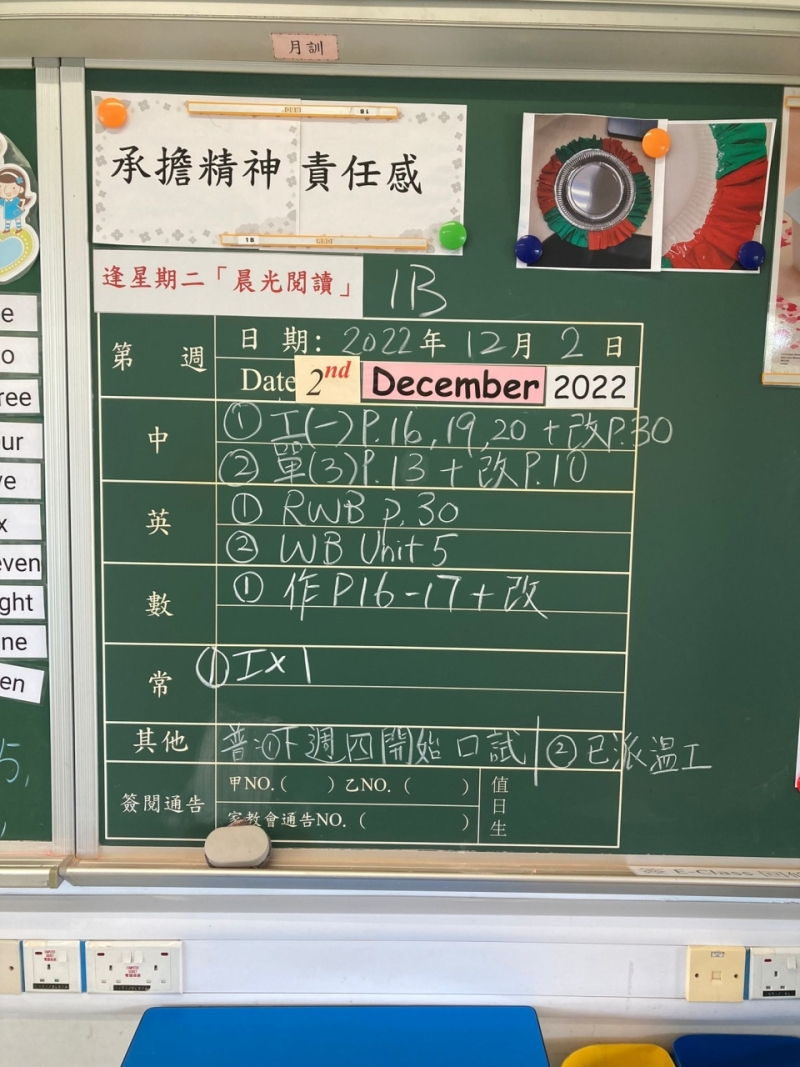 月訓
承擔精神 責任感
逢星期二「晨光閱讀」
1B
第 週
日期: 2022年 12月 2日
Date 2nd December 2022
中
① 工(一)P.16,19,20 + 改P.30
② 單(3)P.13 + 改P.10
英
① RWB P.30
② WB Unit 5
數
① 作P16-17 + 改
常
① 工x1
其他
普:①下週四開始口試 ②已派溫工
簽閱通告
甲NO.( ) 乙NO.( )
家教會通告NO.( )
值日生
e
o
ree
ur
ve
x
even
ght
ne
en
5,
E-Class